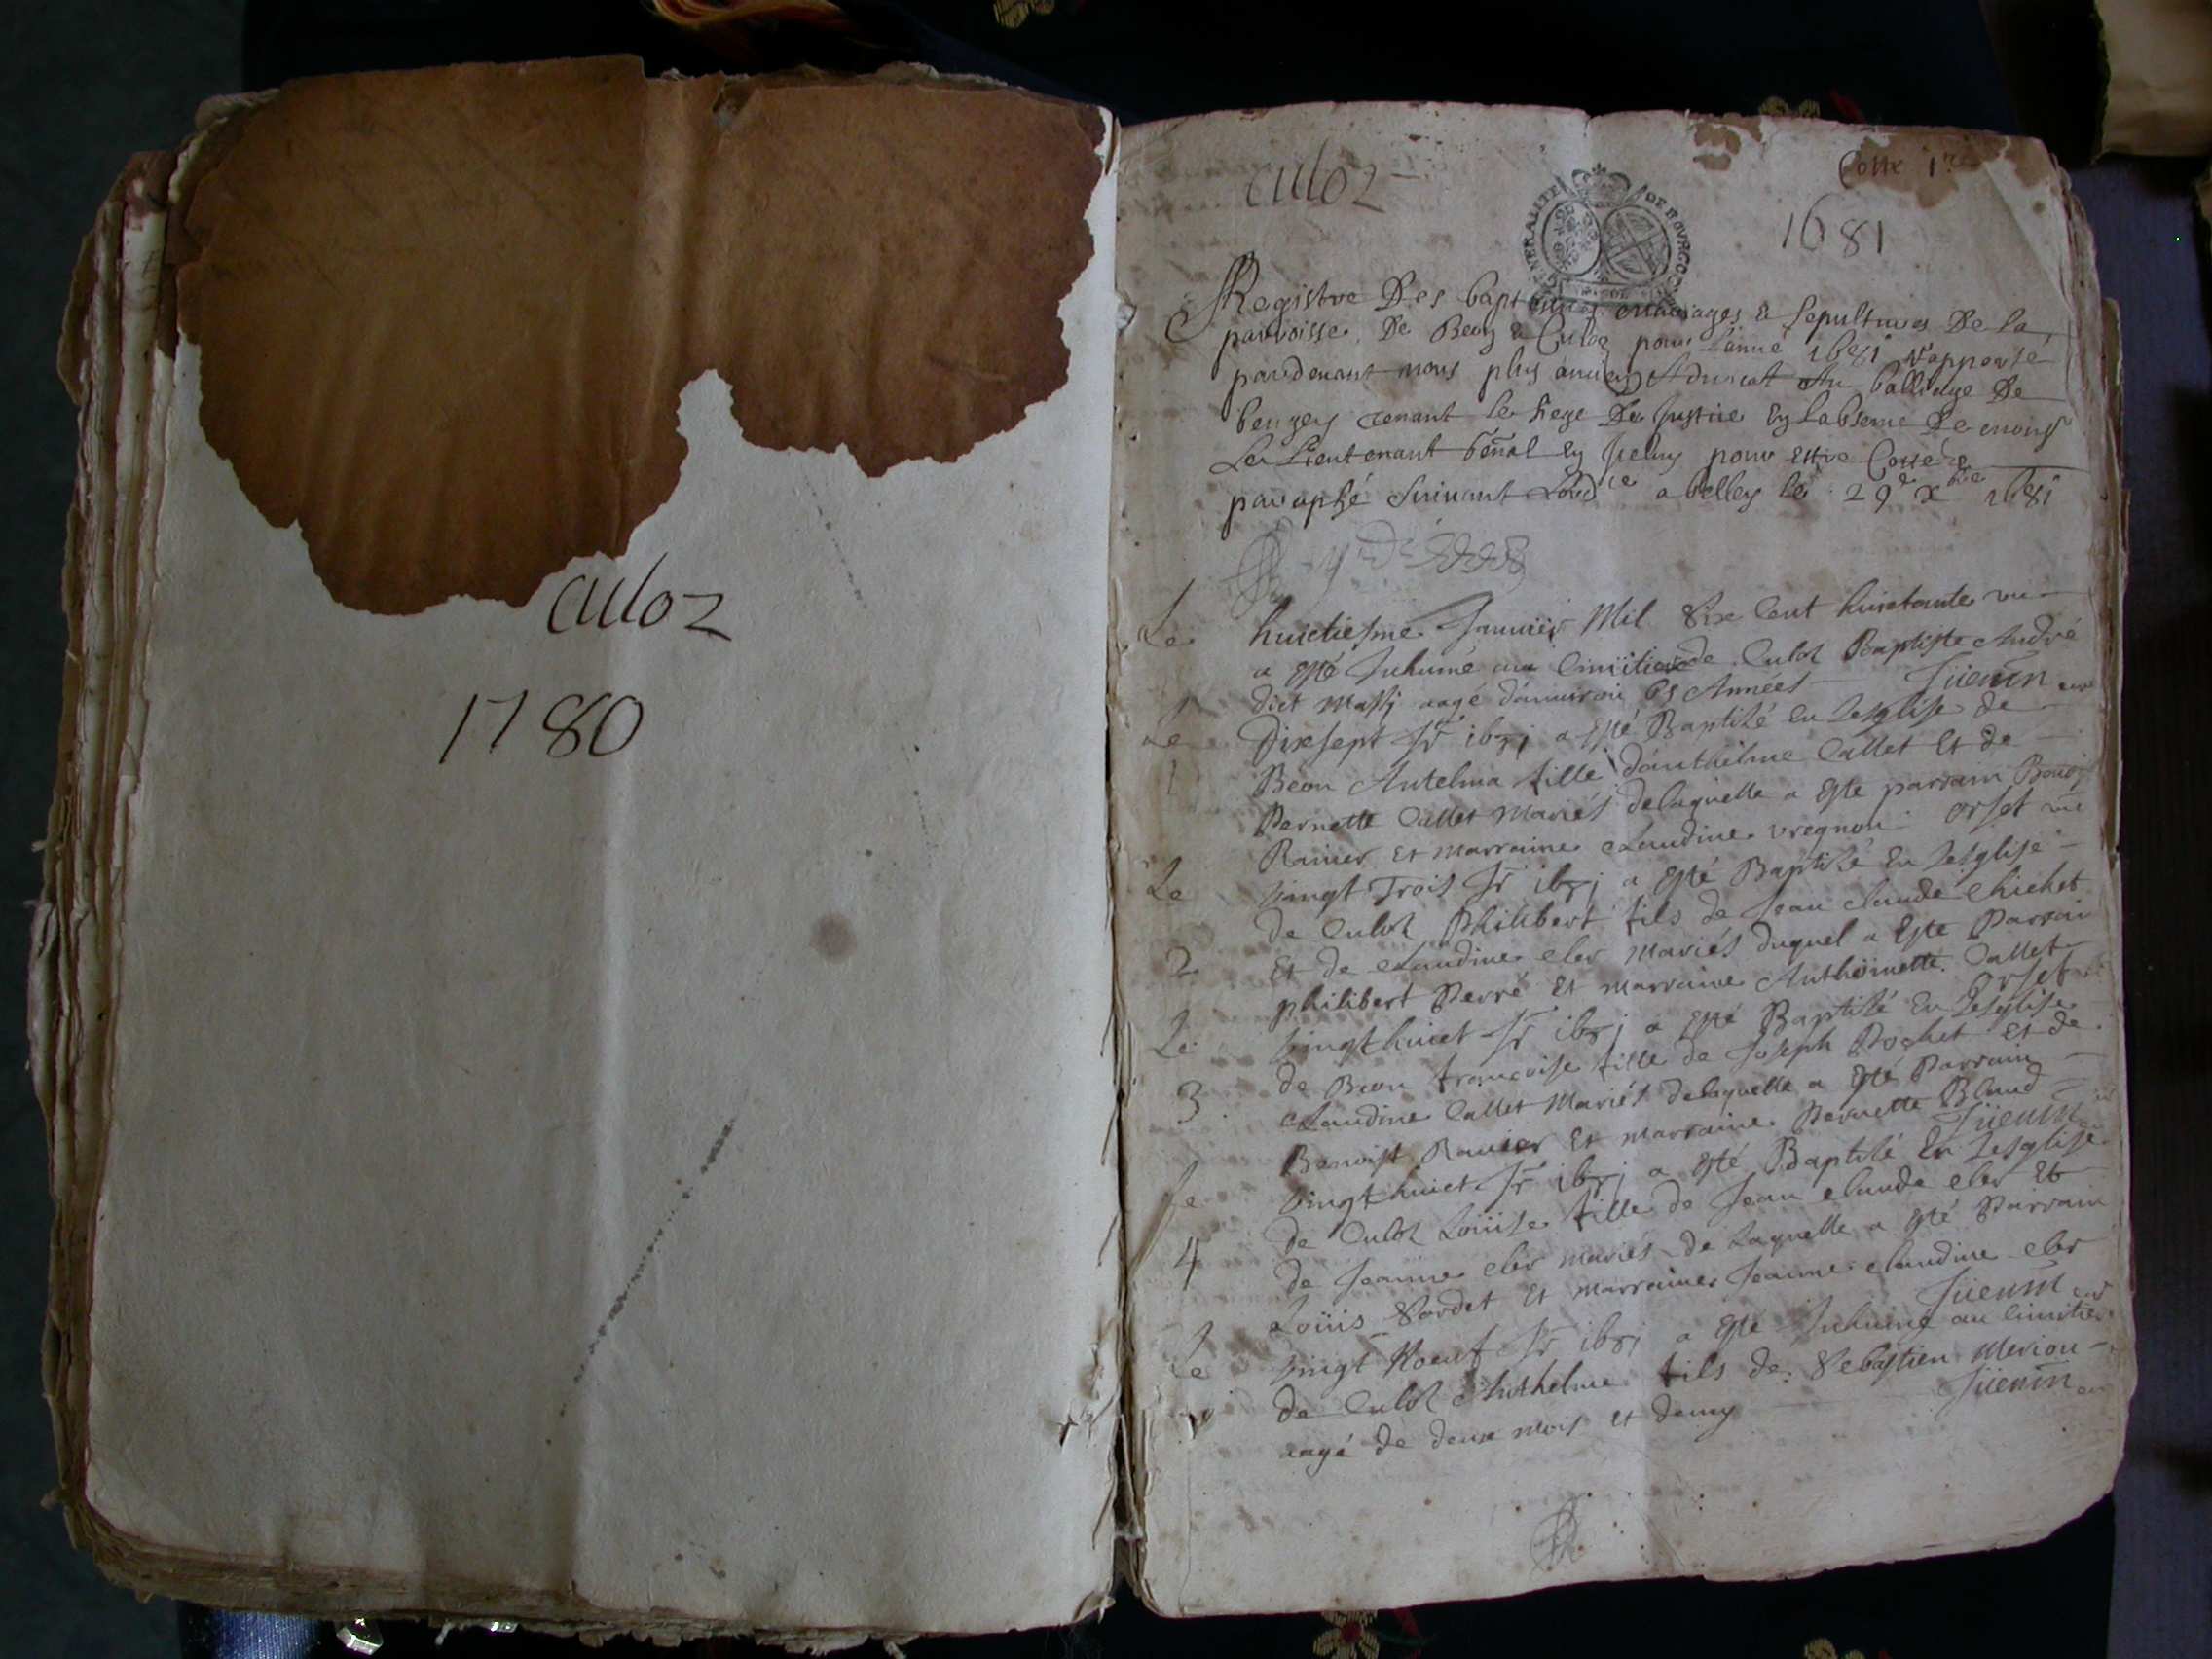 Culoz
1780
Culoz
Cotte 1re
1681
GENERALITE DE BOURGO
Registre Des baptemes mariages & Sepultures De la
parroisse De Beon & Culoz pour Lannée 1681 rapporté
pardevant nous plus ancien Advocat Au balliage De
beugey tenant le siege De Justice en labsence De
Le Lieutenant pour estre Cotté &
paraphé suivant Lordce a belley le 29e xbre 1681
Le huictiesme Janvier Mil Six Cent huictante un
a esté Inhumé au Cimitiere de Culoz Baptiste André
dict aagé d'environ 65 Années Juenin curé
Le Dixsept Jr 1681 a esté Baptisé En Lesglise de
1 Beon Antelma fille d'anthelme Callet Et de
Pernette Callet Mariés delaquelle a esté parrain
Ranier Et marraine Claudine vregnon orset vic
Le vingt Trois Jr 1681 a esté Baptisé En Lesglise
de Culoz Philibert fils de Jean claude Chichet
2 Et de Claudine cler Mariés duquel a Esté Parrain
philibert Perré Et marraine Anthoinette Callet
orset
Le vingt huict Jr 1681 a esté Baptisé En Lesglise
de Beon françoise fille de Joseph Pochet Et de
3 Claudine Callet Mariés delaquelle a esté Parrain
Benoist Ranier Et marraine Pernette Blund
Juenin
Le vingt huict Jr 1681 a esté Baptisé En Lesglise
de Culoz Loüise fille de Jean claude cler Et
4 de Jeanne cler mariés de Laquelle a esté Parrain
Loüis Sordet Et marraine Jeanne claudine cler
Juenin curé
Le vingt Noeuf Jr 1681 a esté Inhumé au Cimitiere
de Culoz Anthelme fils de Sebastien Merion
aagé de deux mois Et demy Juenin curé